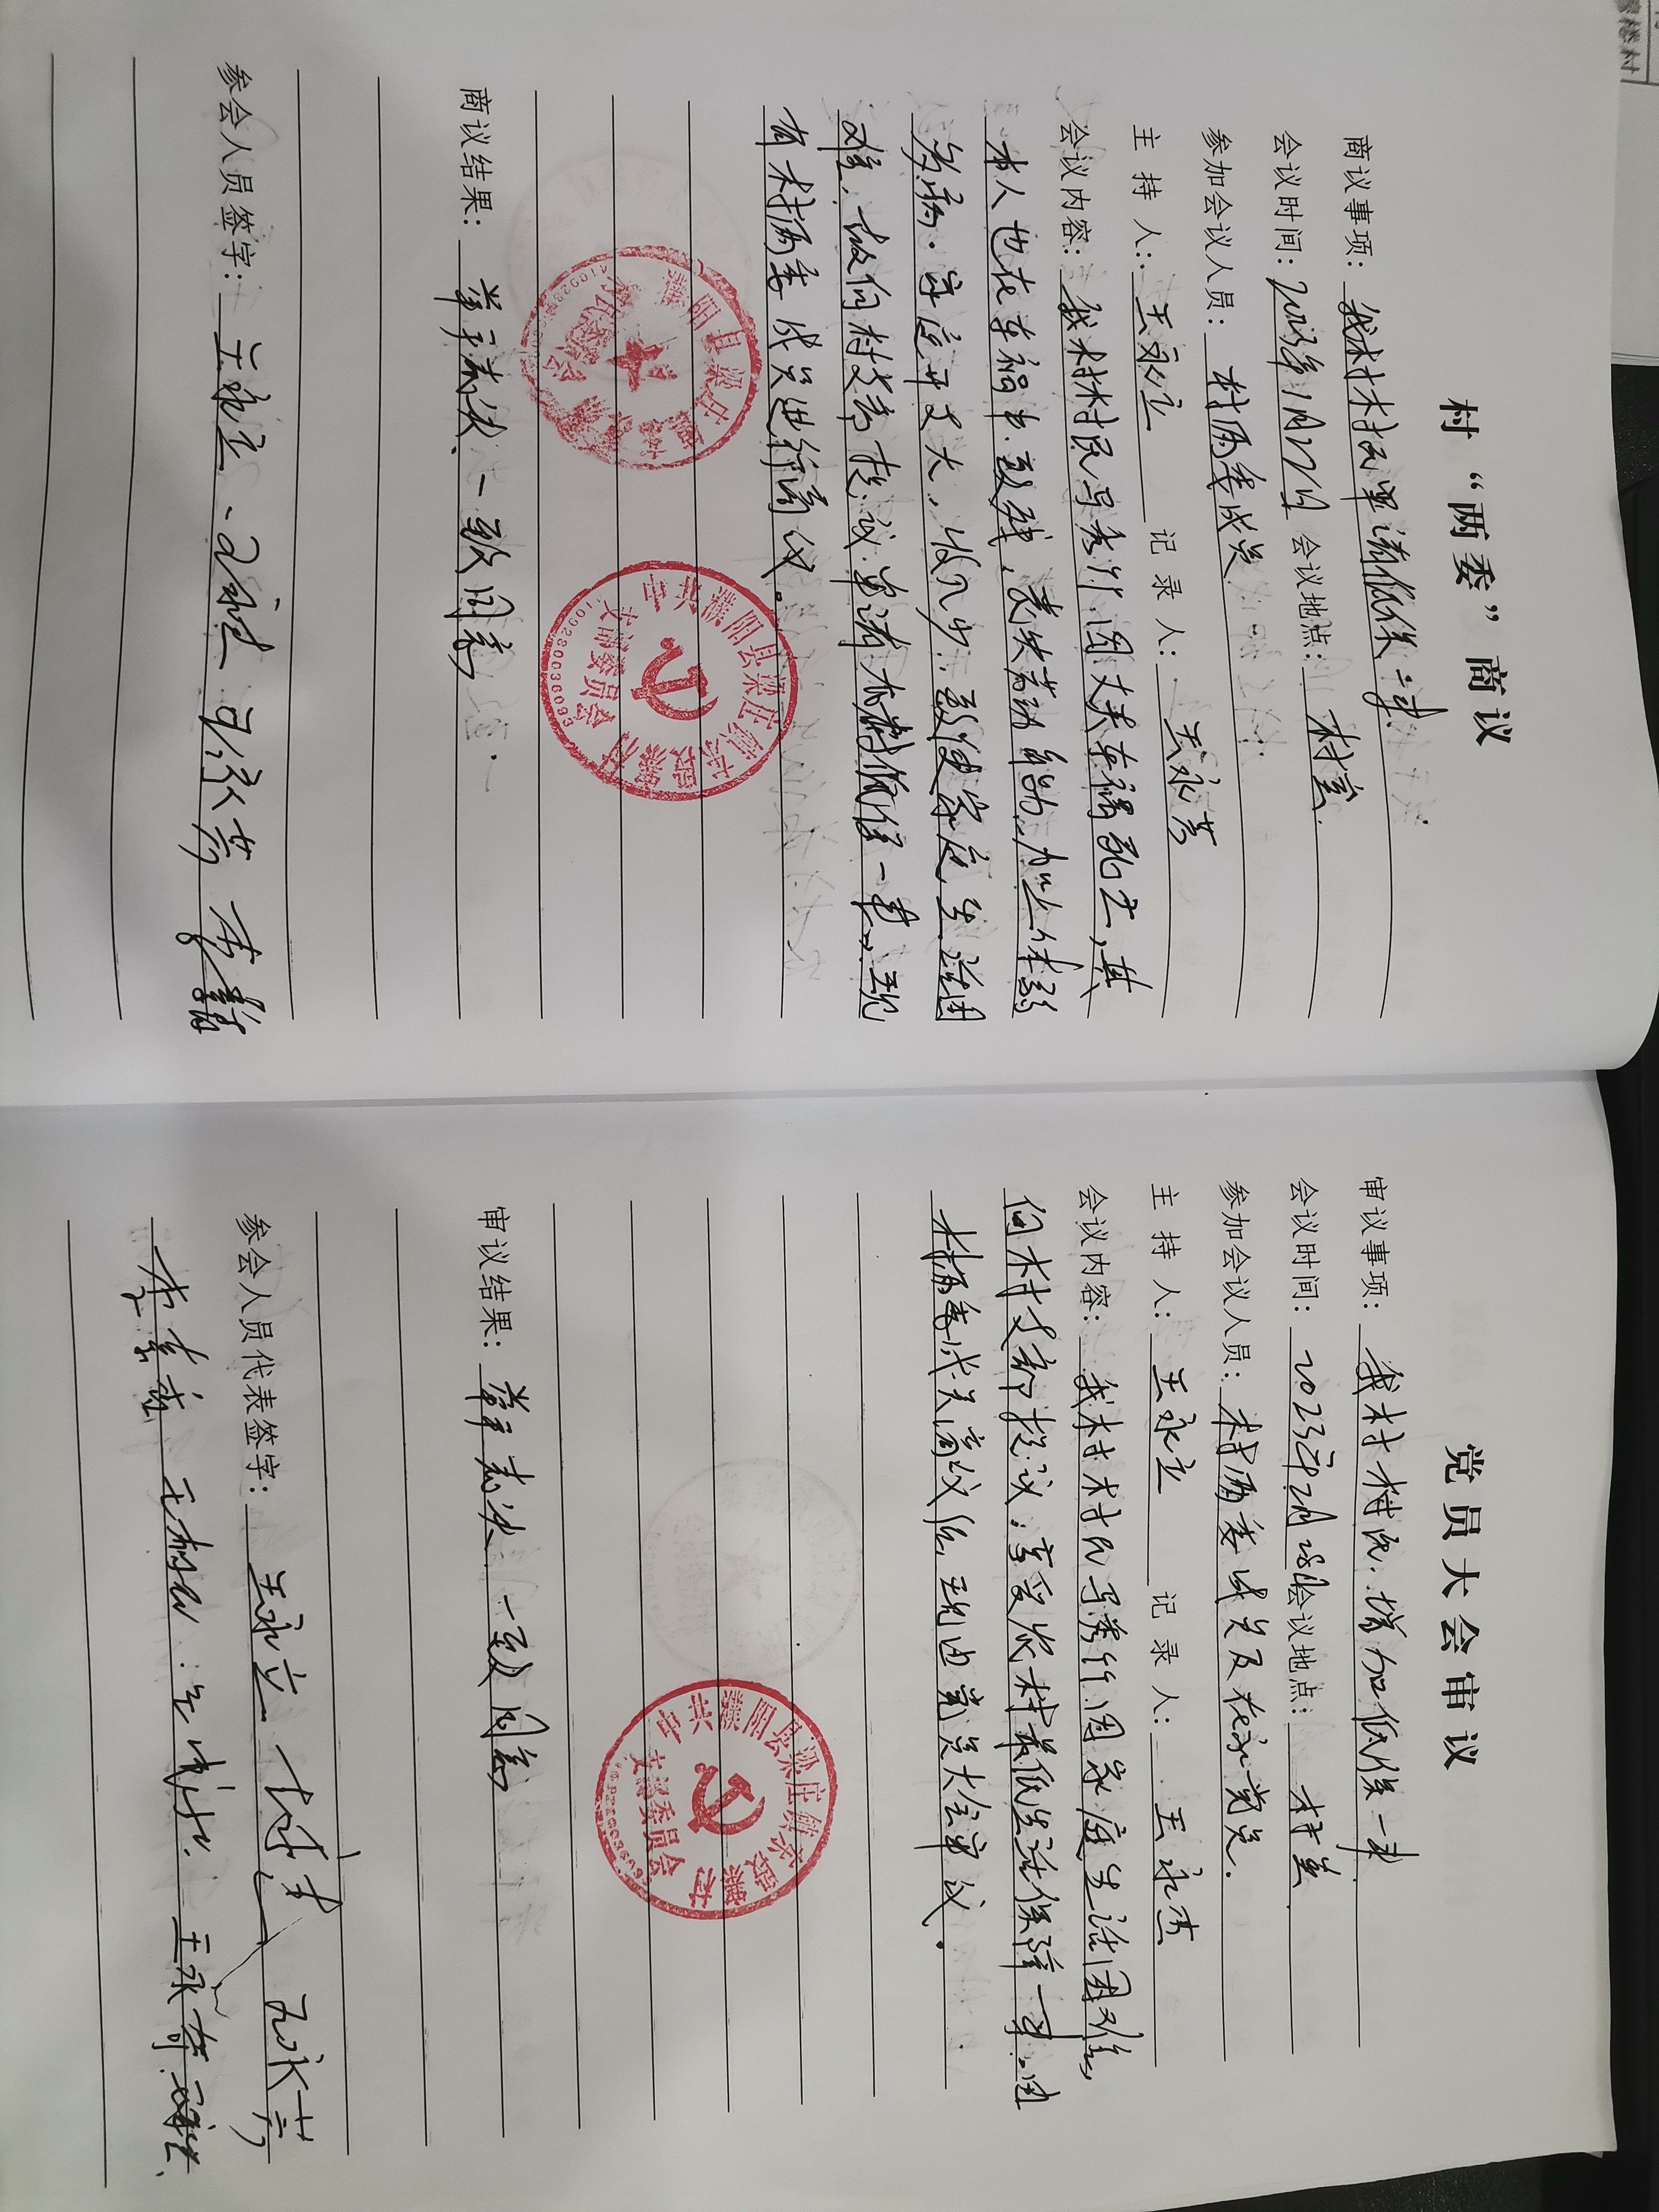 楼村
村“两委”商议
商议事项: 我村村民申请低保一事.
会议时间: 2023年1月22日 会议地点: 村室.
参加会议人员: 村两委成员
主 持 人: 王永立 记 录 人: 王永芳
会议内容: 我村村民马秀竹因丈夫车祸死亡,其
本人也在车祸中致残,丧失劳动能力,加上体弱
多病.家庭开支大,收入少,致使家庭生活困
难,故向村支部提议申请农村低保一事,现
有村两委成员进行商议。
濮阳县梁庄镇东
村民委员会
中共濮阳县梁庄镇东段寨村
支部委员会
4109280036093
商议结果: 举手表决、一致同意
参会人员签字: 王永立 王永杰 王永芳 李
党员大会审议
审议事项: 我村村民增加低保一事.
会议时间: 2023年2月28日 会议地点: 村室.
参加会议人员: 村两委成员及在家党员.
主 持 人: 王永立 记 录 人: 王永杰
会议内容: 我村村民马秀竹因家庭生活困难,
向村支部提议,享受农村最低生活保障一事,由
村两委成员商议后,现由党员大会审议.
中共濮阳县梁庄镇东段寨村
支部委员会
审议结果: 举手表决 一致同意
参会人员代表签字: 王永立 王永芳
李素 王 王永奇